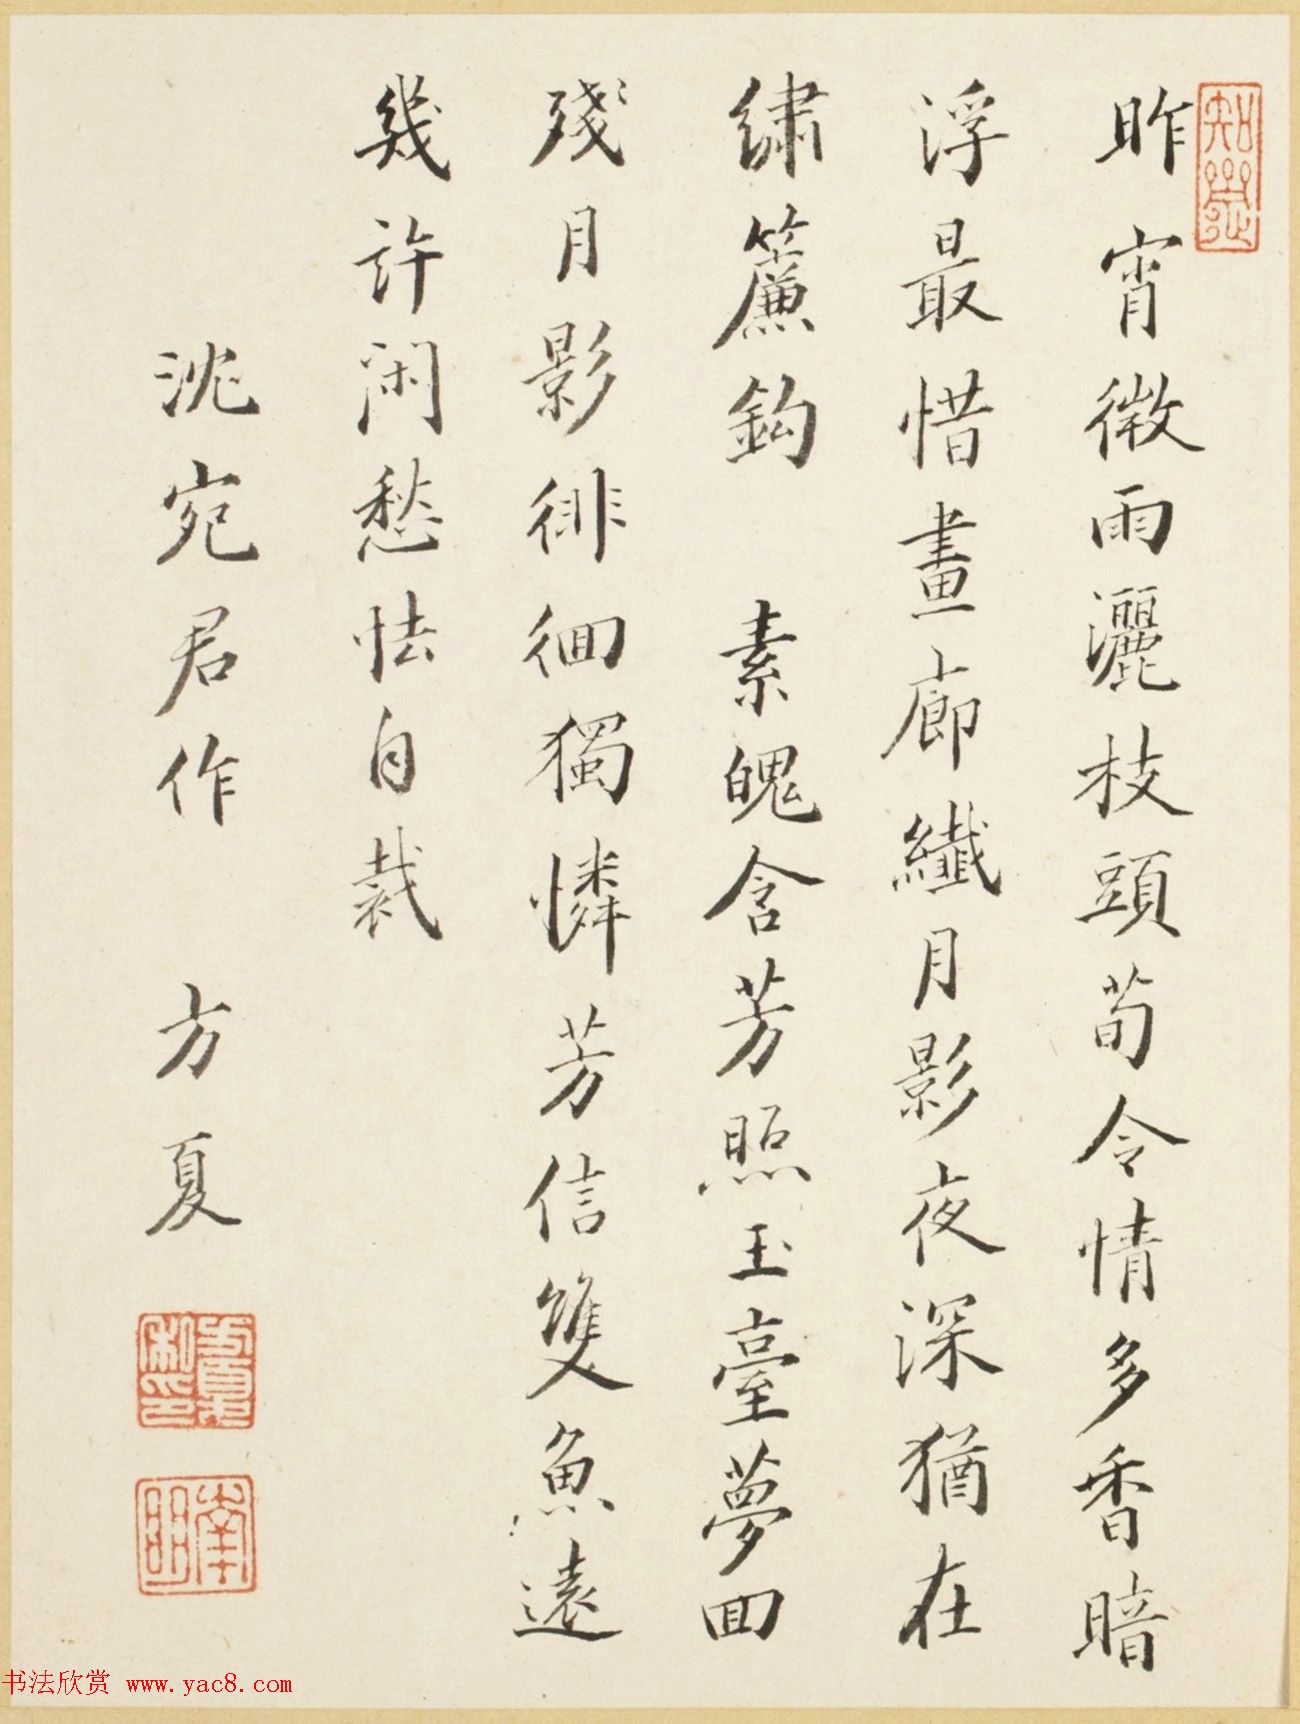 昨宵微雨灑枝頭荀令情多香暗
浮最惜畫廊纖月影夜深猶在
繡簾鈎 素魄含芳照玉臺夢回
殘月影徘徊獨憐芳信雙魚遠
幾許閑愁怯自裁
沈宛君作 方夏
书法欣赏 www.yac8.com